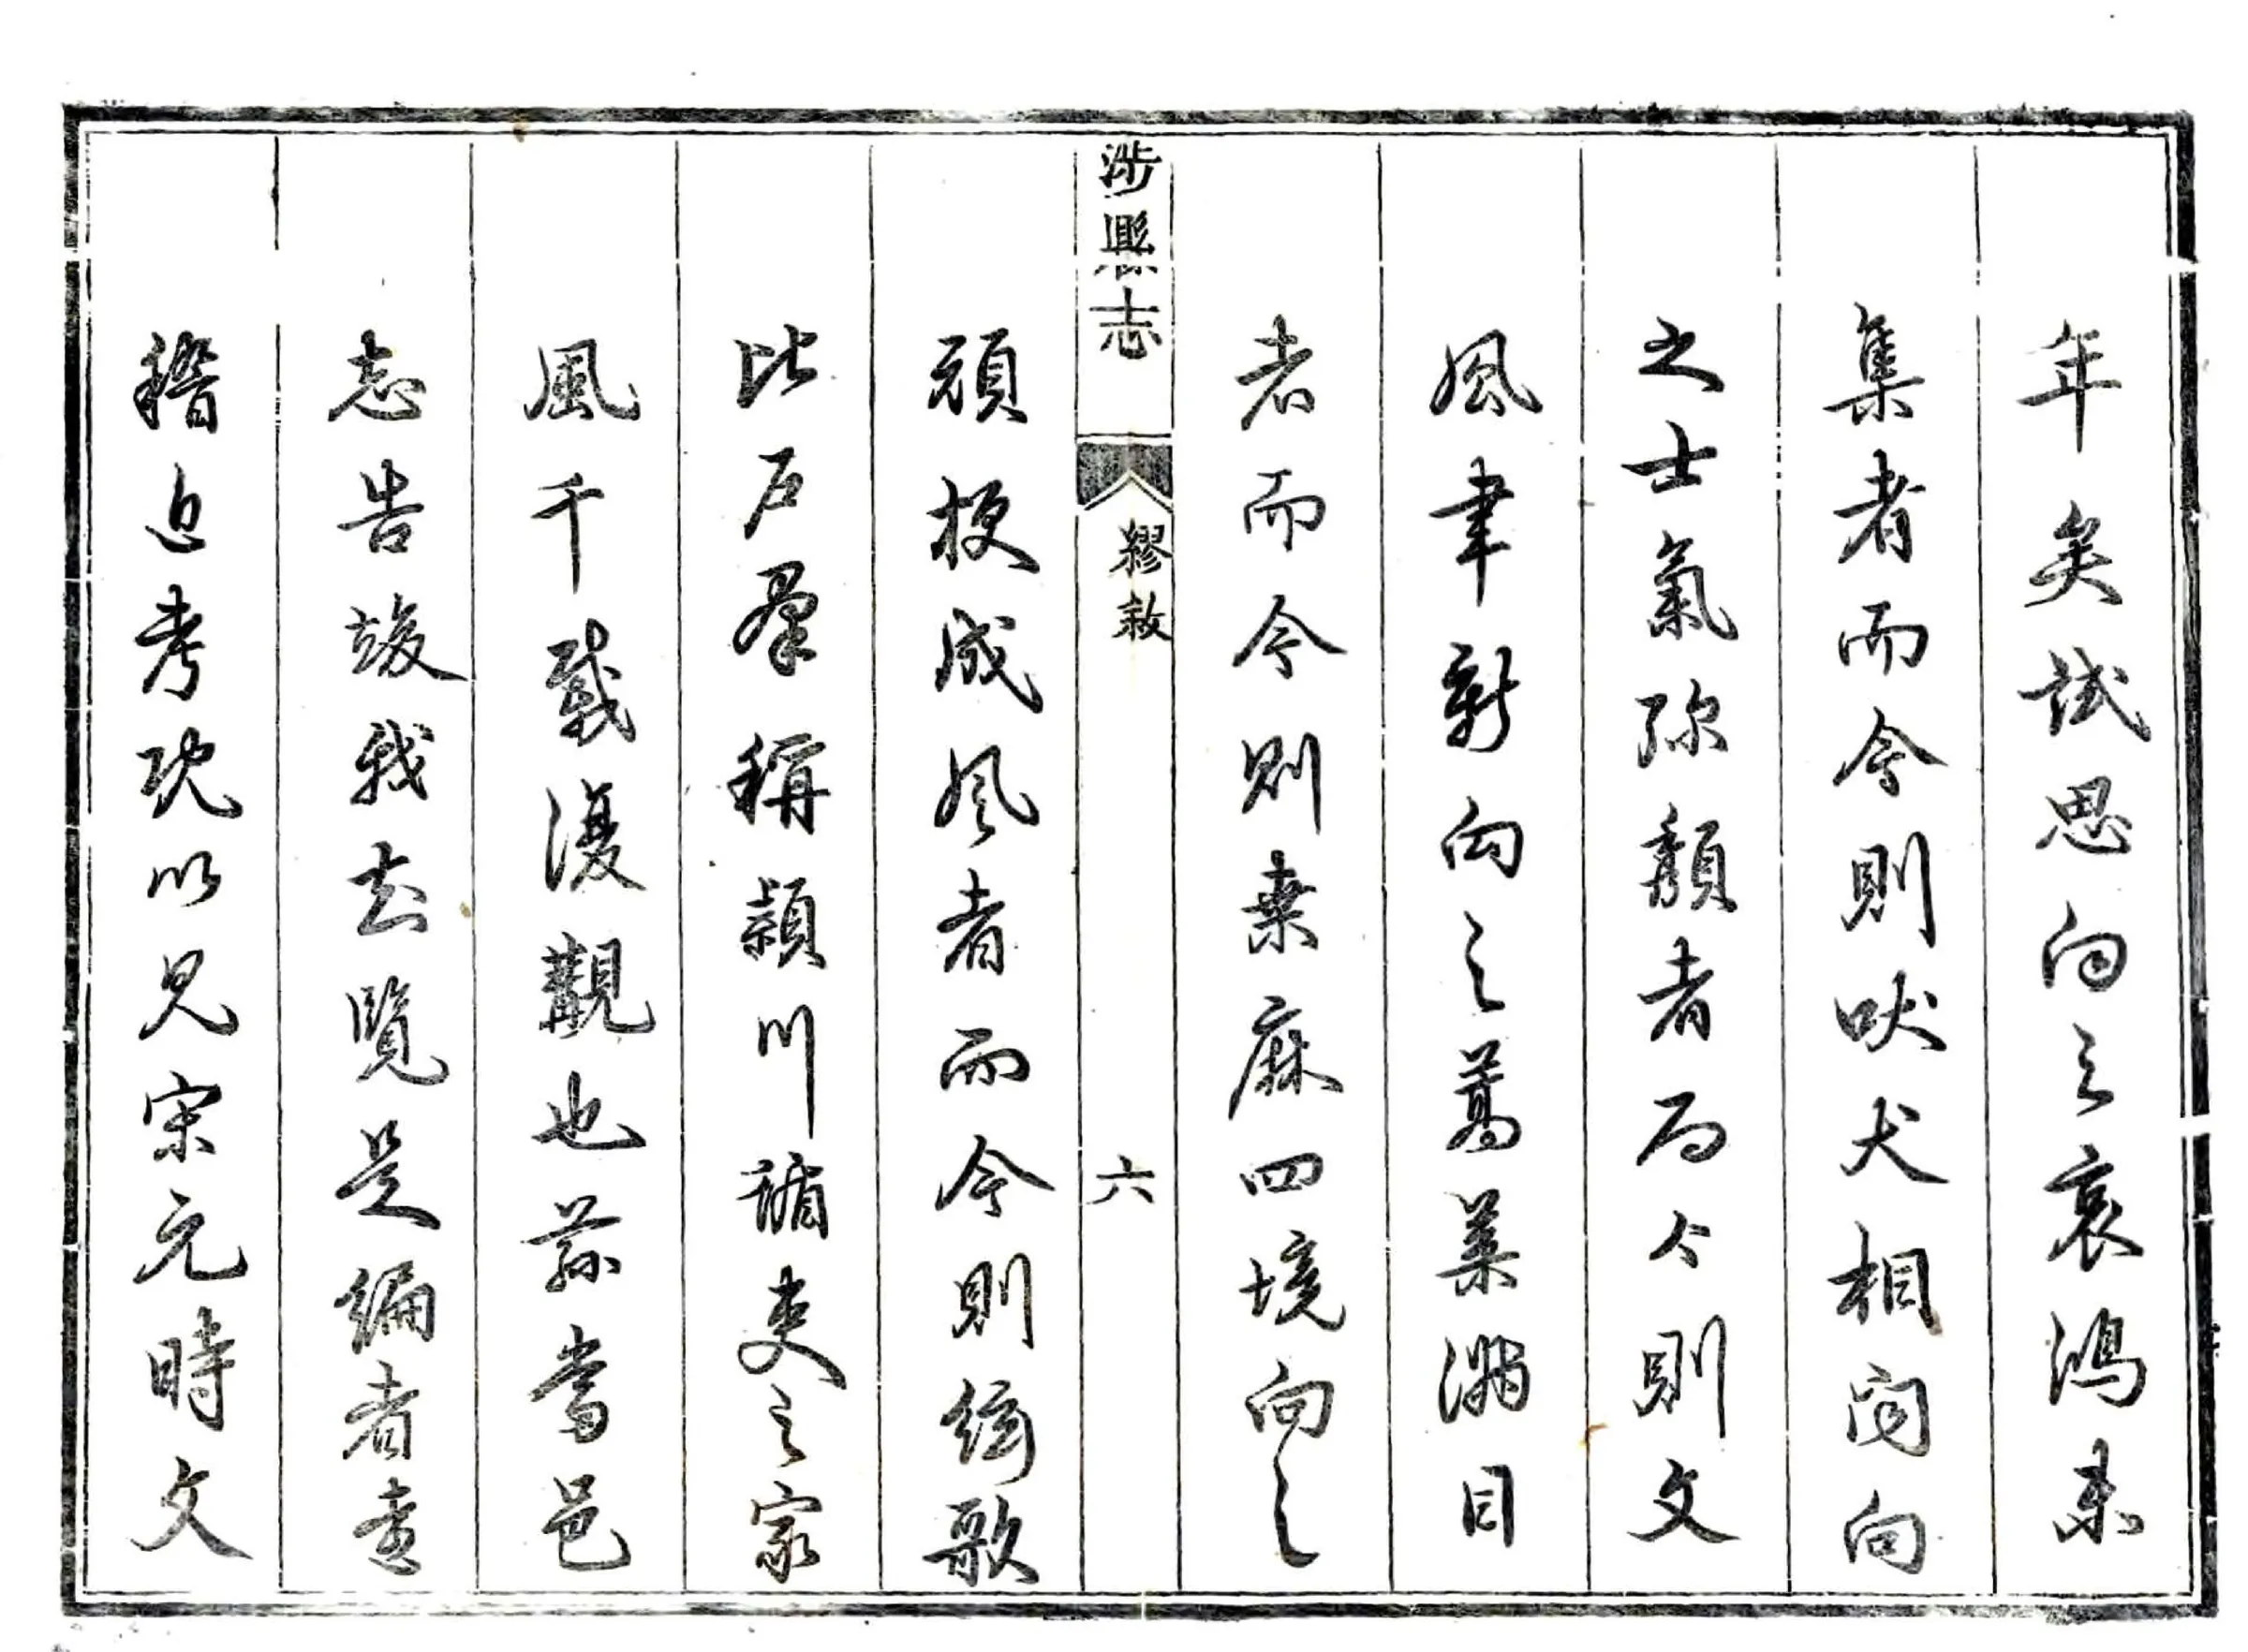 年矣試思向之哀鴻未
集者而今則吠犬相聞向
之士氣弥頽者而今則文
風聿新向之蒿萊滿目
者而今則桑麻四境向之
涉縣志
繆敘
六
頑梗成風者而今則絃歌
比戶羣稱潁川循吏之家
風千載復覯也茲當邑
志告竣我覽是編者意
稽近考以見宋元時文